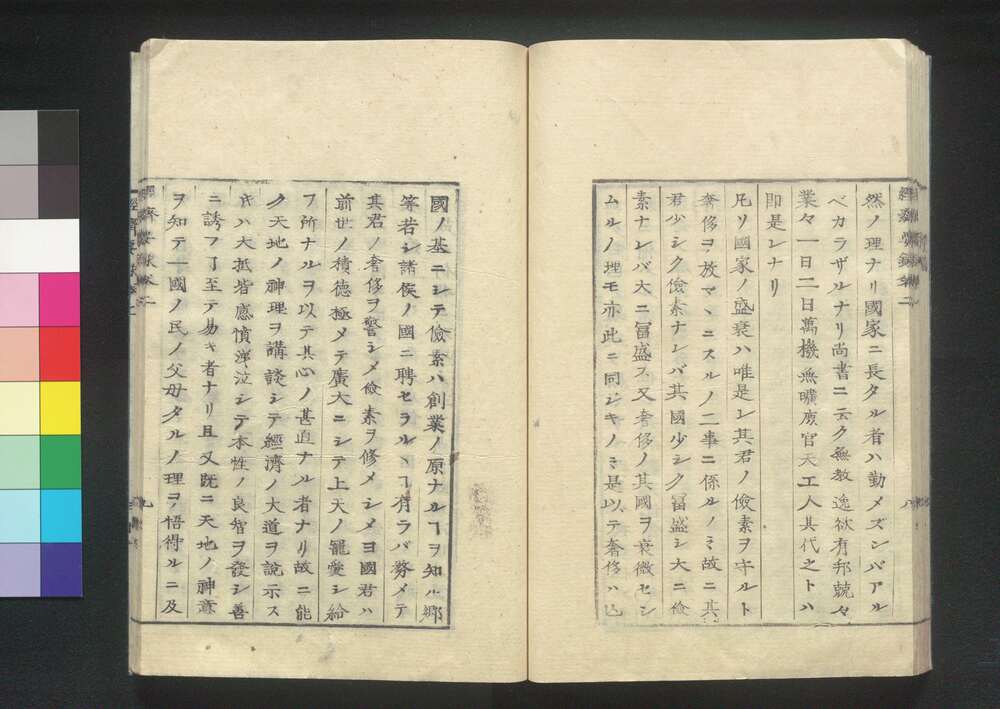 然ノ理ナリ國家ニ長タル者ハ勤メズンバアル
ベカラザルナリ尚書ニ云ク無教逸欲有邦兢々
業々一日二日萬機無曠庶官天工人其代之トハ
即是レナリ
凡リ國家ノ盛衰ハ唯是レ其君ノ儉素ヲ守ルト
奢侈ヲ放マヽニスルノ二事ニ係ルノミ故ニ其
君少シク儉素ナレバ其國少シク冨盛シ大ニ儉
素ナレバ大ニ冨盛ス又奢侈ノ其國ヲ衰微セシ
ムルノ理モ亦此ニ同ジキノミ是以テ奢侈ハ亾
國ノ基ニシテ儉素ハ創業ノ原ナルヿヲ知ル郷
等若シ諸侯ノ國ニ聘セラルヽヿ有ラバ務メテ
其君ノ奢侈ヲ警シメ儉素ヲ修メシメヨ國君ハ
前世ノ積徳極メテ廣大ニシテ上天ノ寵愛シ給
フ所ナルヲ以テ其心ノ甚直ナル者ナリ故ニ能
ク天地ノ神理ヲ講談シテ經濟ノ大道ヲ説示ス
キハ大抵皆感憤涕泣シテ本性ノ良智ヲ發シ善
ニ誘フヿ至テ易キ者ナリ且又既ニ天地ノ神意
ヲ知テ一國ノ民ノ父母タルノ理ヲ悟得ルニ及